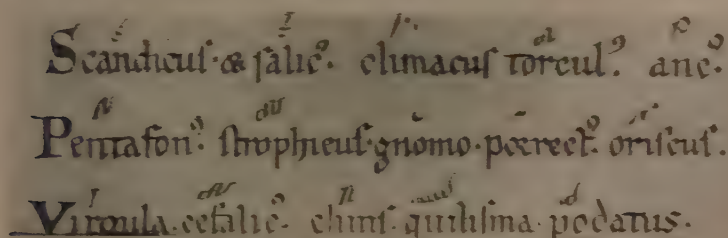 Scandicus · & salicꝰ. climacus torculꝰ. ancꝰ.
Pentafonꝰ. strophicus · gnomo · porrectꝰ. oriscus.
Virgula. cefalicꝰ. clinis. quilisma. podatus.